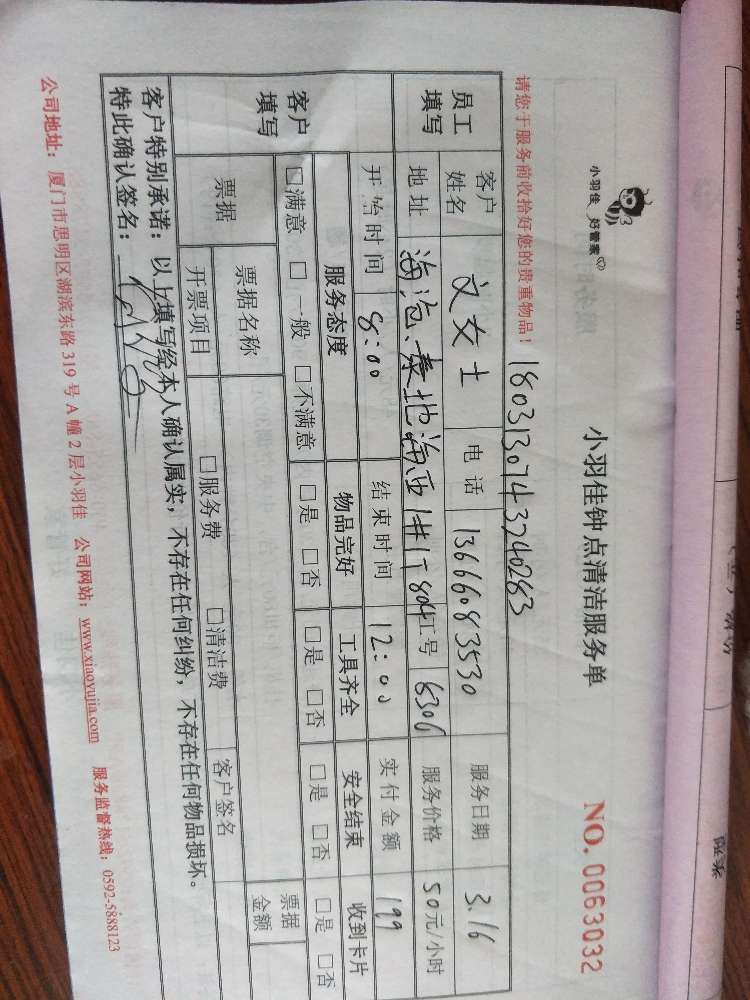 小羽佳 好管家
小羽佳钟点清洁服务单
NO. 0063032
1803130743740283
请您于服务前收拾好您的贵重物品！
员工填写
客户姓名 文女士 电话 13666083530 服务日期 3.16
地址 海沧、泰地海西1#1T804 工号 6306 服务价格 50元/小时
开始时间 8:00 结束时间 12:00 实付金额 199
客户填写
服务态度 物品完好 工具齐全 安全结束 收到卡片
□满意 □一般 □不满意 □是 □否 □是 □否 □是 □否 □是 □否
票据 票据名称 客户签名 票据金额
开票项目 □服务费 □清洁费
客户特别承诺：以上填写经本人确认属实，不存在任何纠纷，不存在任何物品损坏。
特此确认签名：
公司地址：厦门市思明区湖滨东路 319 号 A 幢 2 层小羽佳 公司网站：www.xiaoyujia.com 服务监督热线：0592-5888123